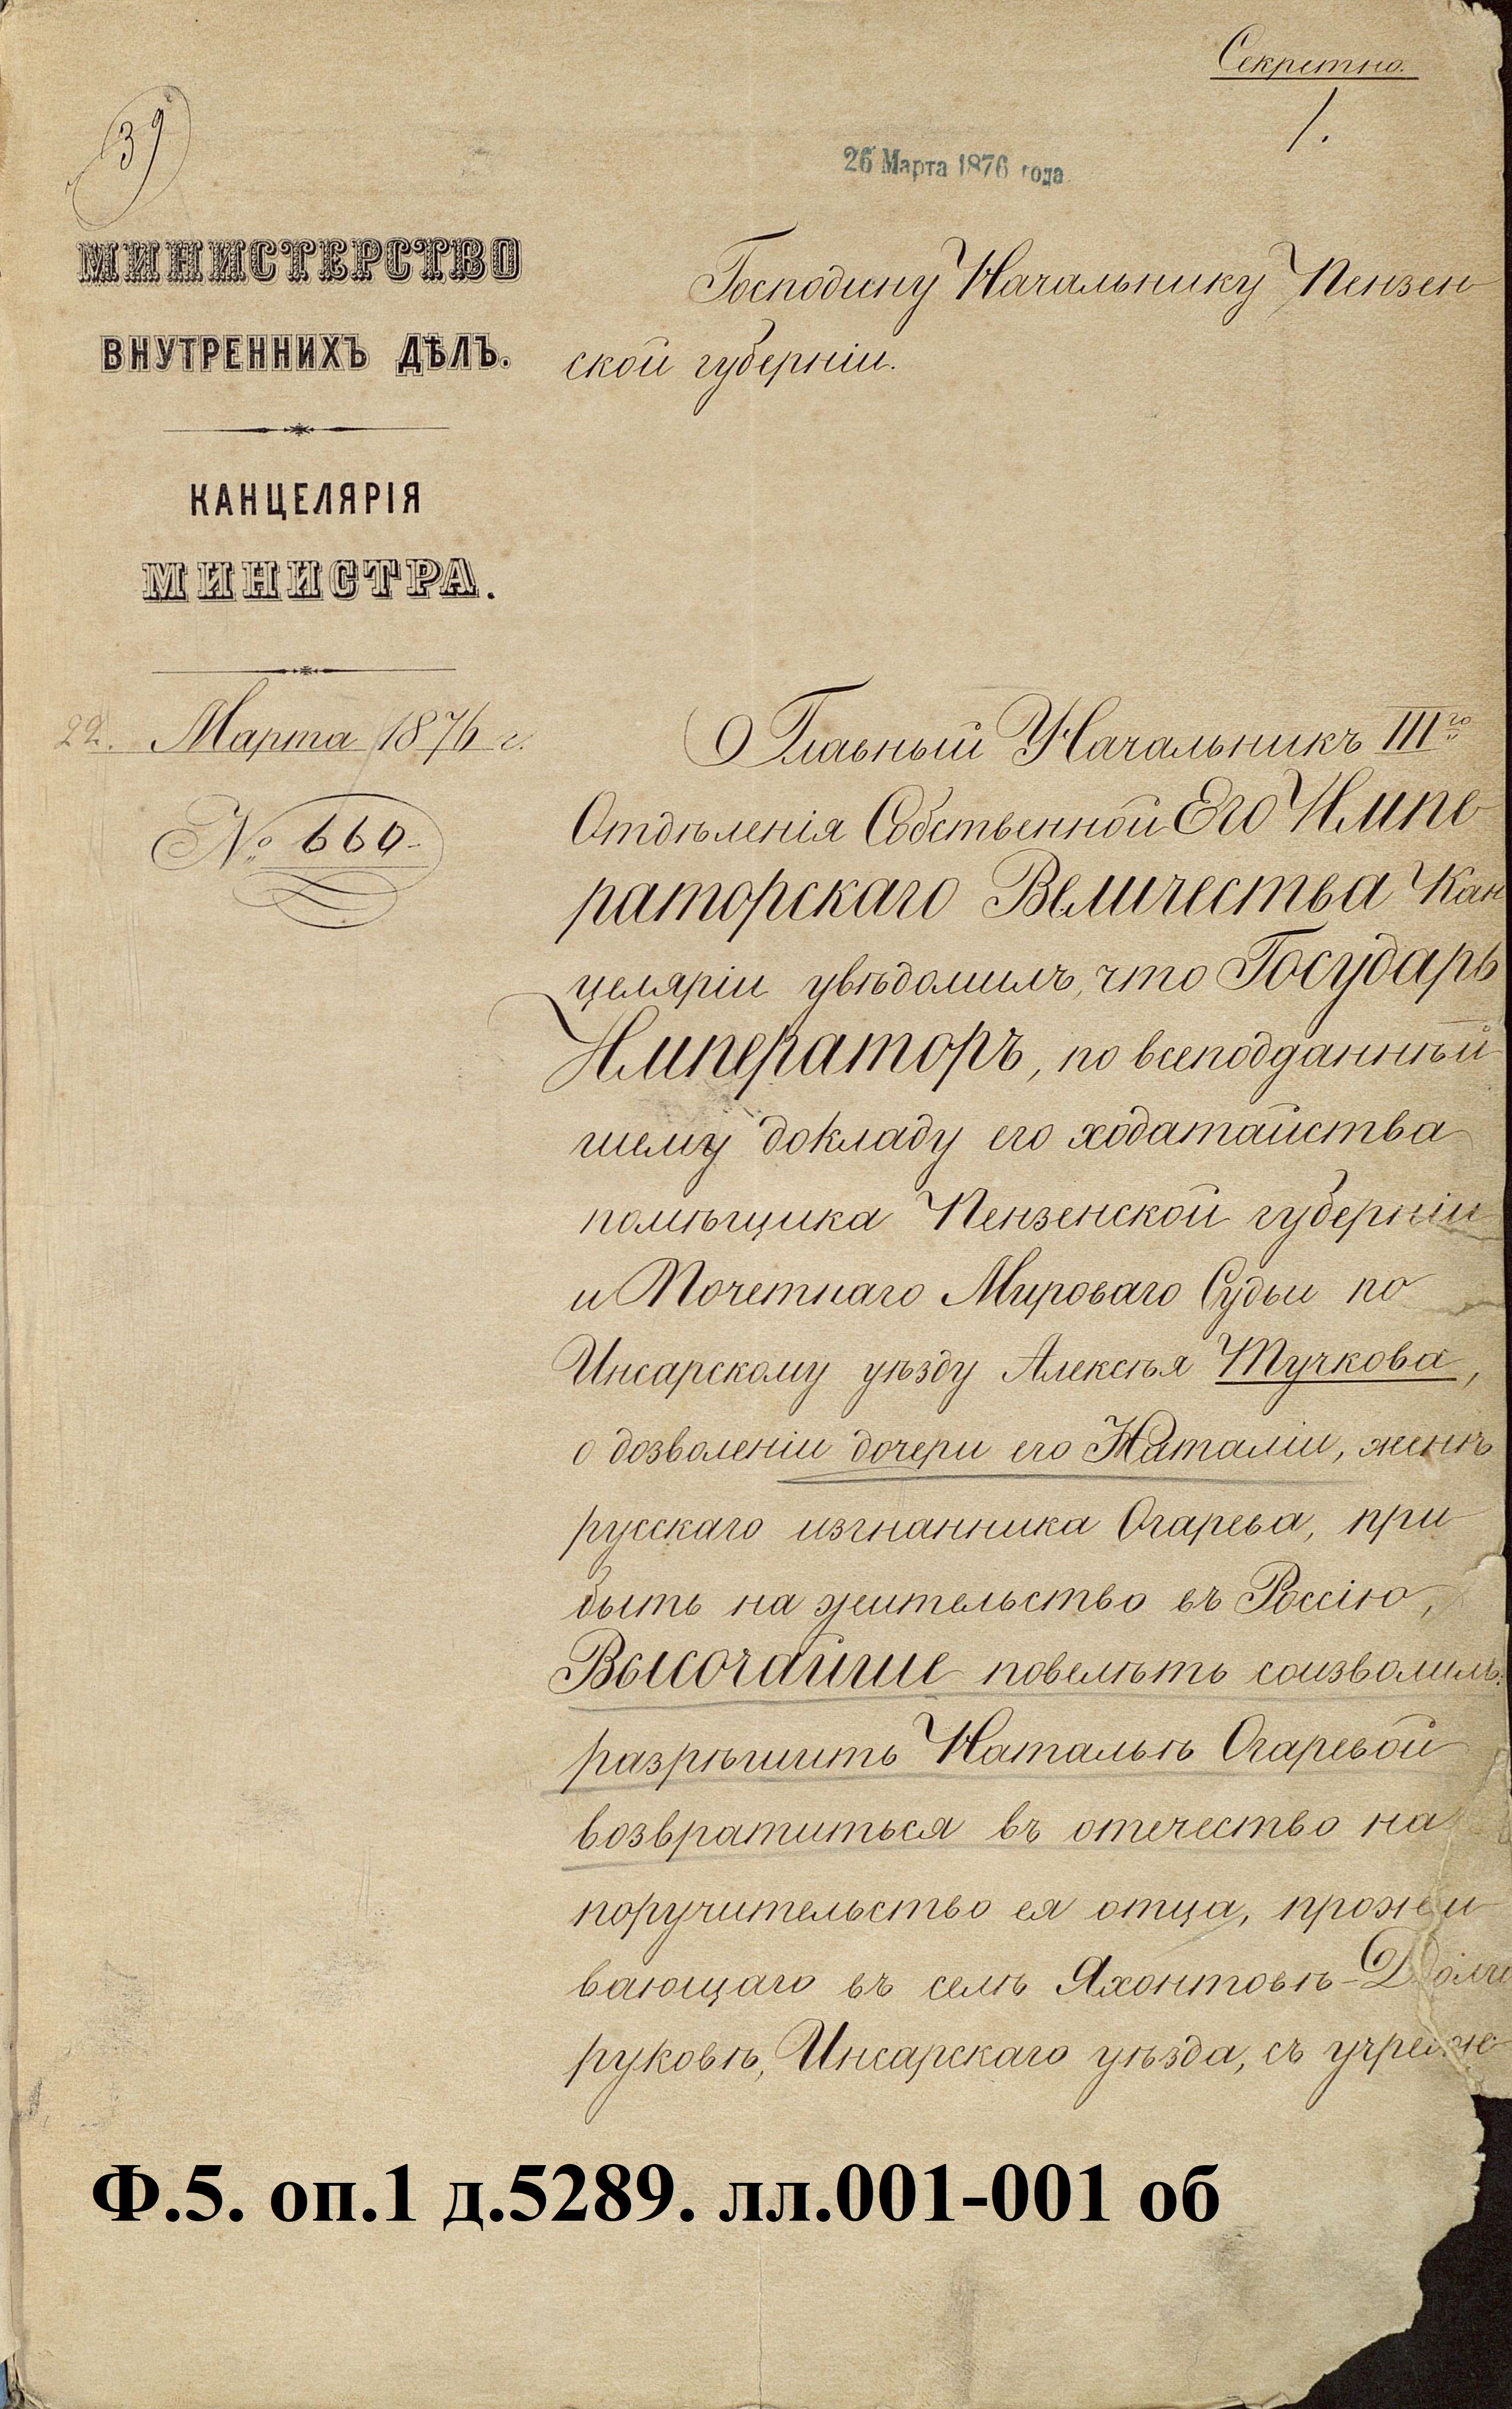 Секретно.
1.
39
26 Марта 1876 года
МИНИСТЕРСТВО
ВНУТРЕННИХЪ ДѢЛЪ.
КАНЦЕЛЯРІЯ
МИНИСТРА.
22. Марта 1876 г.
№ 660
Господину Начальнику Пензен
ской губерніи.
Главный Начальникъ IIIго
Отдѣленія Собственной Его Импе
раторскаго Величества Кан
целяріи увѣдомилъ, что Государь
Императоръ, по всеподданнѣй
шему докладу его ходатайства
помѣщика Пензенской губерніи
и Почетнаго Мироваго Судьи по
Инсарскому уѣзду Алексѣя Тучкова,
о дозволеніи дочери его Наталіи, женѣ
русскаго изгнанника Огарева, при
быть на жительство въ Россію,
Высочайше повелѣть соизволилъ:
разрѣшить Натальѣ Огаревой
возвратиться въ отечество на
поручительство ея отца, прожи
вающаго въ селѣ Яхонтовѣ-Долго
руковѣ, Инсарскаго уѣзда, съ учреж
Ф.5. оп.1 д.5289. лл.001-001 об